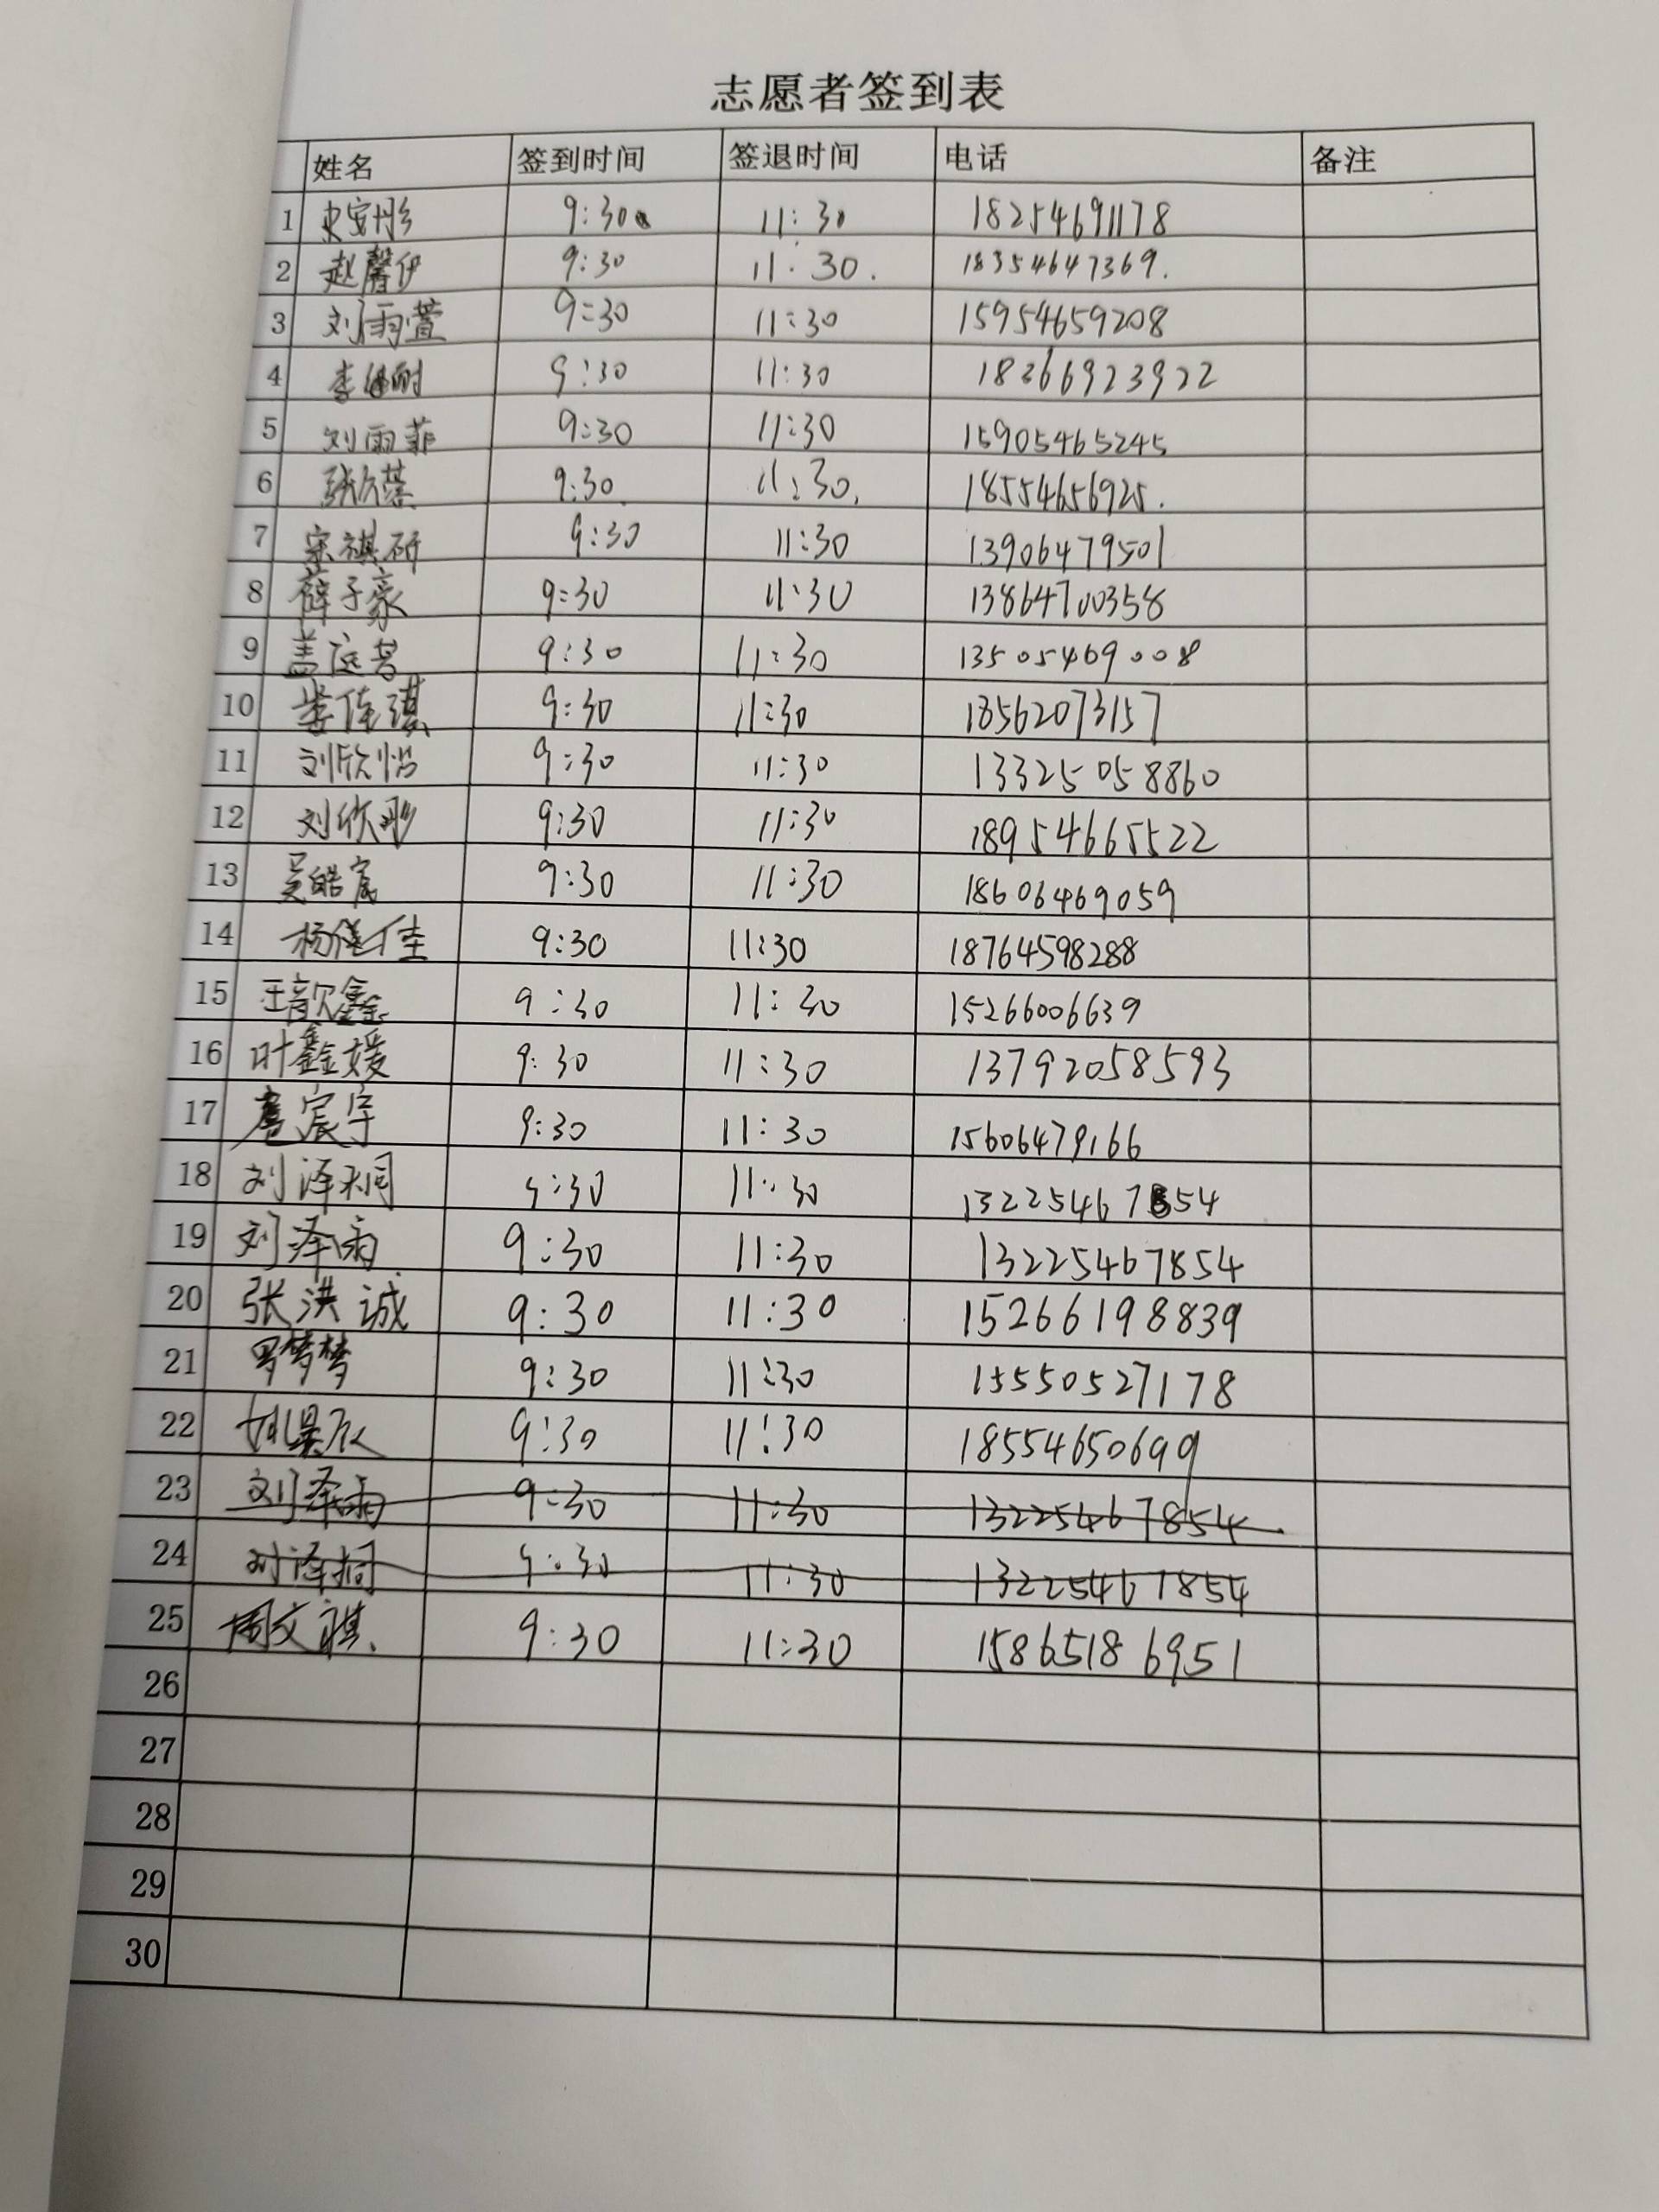 志愿者签到表
姓名 签到时间 签退时间 电话 备注
1 史安彤 9:30 11:30 18254691178
2 赵馨伊 9:30 11:30. 18354647369.
3 刘雨萱 9:30 11:30 15954659208
4 李 9:30 11:30 18366923922
5 刘雨菲 9:30 11:30 15905465245
6 张欣蕊 9:30 11:30. 18554656925.
7 宗祺砾 9:30 11:30 13906479501
8 薛子豪 9:30 11:30 13864700358
9 盖庭 9:30 11:30 13505469008
10 佳琪 9:30 11:30 18562073157
11 刘欣怡 9:30 11:30 13325058860
12 刘欣彤 9:30 11:30 18954665522
13 吴皓宸 9:30 11:30 18606469059
14 杨佳 9:30 11:30 18764598288
15 王歆鑫 9:30 11:30 15266006639
16 叶鑫媛 9:30 11:30 13792058593
17 扈宸宇 9:30 11:30 15606479166
18 刘泽桐 9:30 11:30 13225467854
19 刘泽雨 9:30 11:30 13225467854
20 张洪诚 9:30 11:30 15266198839
21 罗梦梦 9:30 11:30 15550527178
22 姚昊辰 9:30 11:30 18554650699
23 刘泽雨 9:30 11:30 13225467854.
24 刘泽桐 9:30 11:30 13225467854
25 周文祺. 9:30 11:30 15865186951
26
27
28
29
30